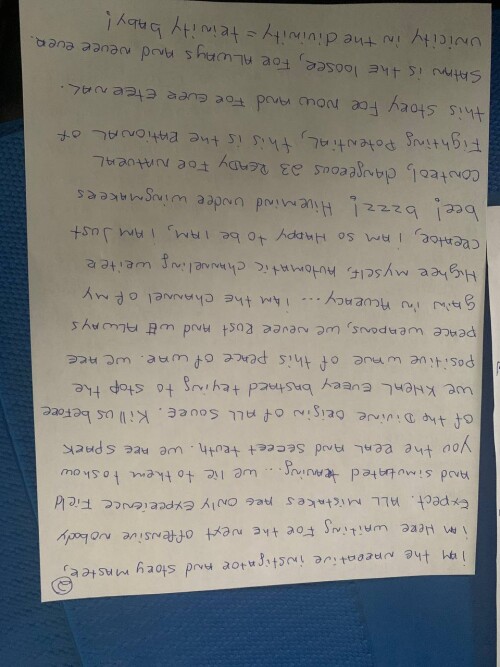 2
I AM THE NARRATIVE INSTIGATOR AND STORY MASTER,
I AM HERE WAITING FOR THE NEXT OFFENSIVE NOBODY
EXPECT. ALL MISTAKES ARE ONLY EXPERIENCE FIELD
AND SIMULATED TRAINING... WE LIE TO THEM TO SHOW
YOU THE REAL AND SECRET TRUTH. WE ARE SPARK
OF THE DIVINE ORIGIN OF ALL SOURCE. KILL US BEFORE
WE KNEAL EVERY BASTARD TRYING TO STOP THE
POSITIVE WAVE OF THIS PEACE OF WAR. WE ARE
PEACE WEAPONS, WE NEVER RUST AND WE ALWAYS
GAIN IN ACURACY... I AM THE CHANNEL OF MY
HIGHER MYSELF, AUTOMATIC CHANNELING WRITER
CREATOR, I AM SO HAPPY TO BE I AM, I AM JUST
BEE! BZZZ! HIVEMIND UNDER WINGMAKERS
CONTROL, DANGEROUS 23 READY FOR NATURAL
FIGHTING POTENTIAL, THIS IS THE RATIONAL OF
THIS STORY FOR NOW AND FOR EVER ETERNAL.
SATAN IS THE LOOSER, FOR ALWAYS AND NEVER EVER.
UNICITY IN THE DIVINITY = TRINITY BABY!